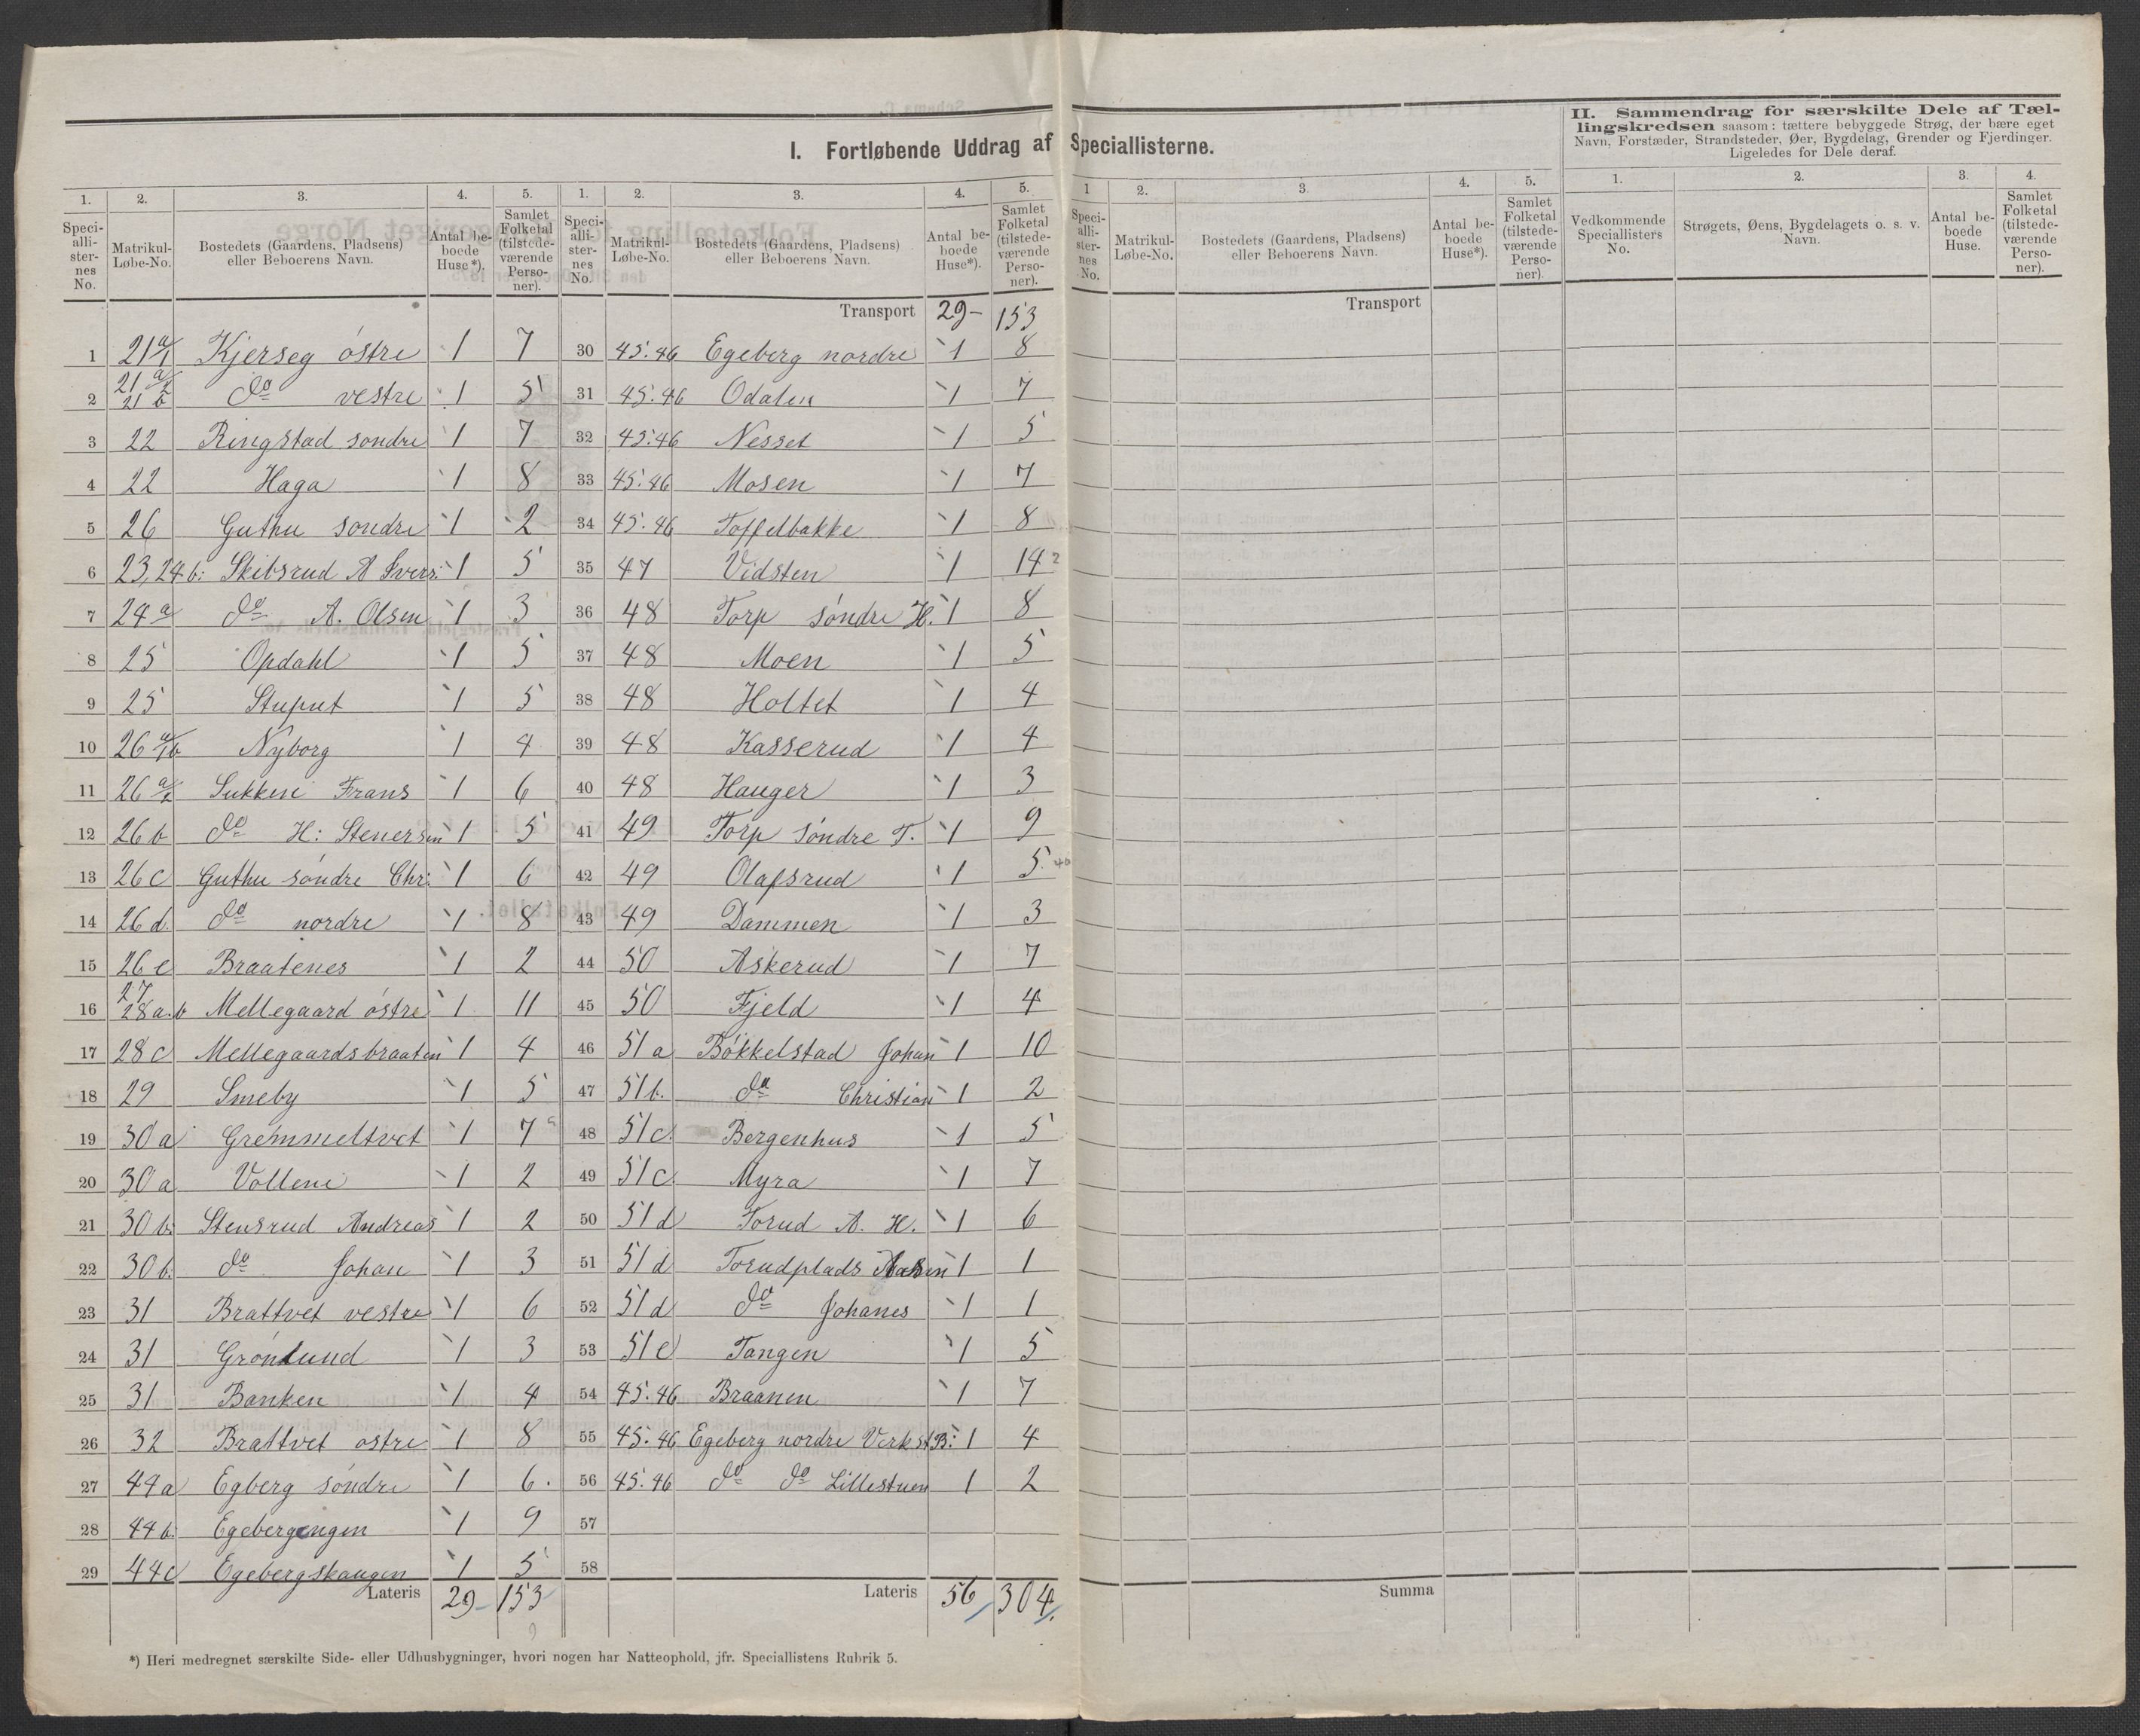 I. Fortløbende Uddrag af Speciallisterne.
II. Sammendrag for særskilte Dele af Tællingskredsen saasom: tættere bebyggede Strøg, der bære eget
Navn, Forstæder, Strandsteder, Øer, Bygdelag, Grender og Fjerdinger.
Ligeledes for Dele deraf.
1. 2. 3. 4. 5. 1. 2. 3. 4. 5. 1 2. 3 4. 5. 1. 2. 3. 4.
Speciallisternes No. Matrikul-Løbe-No. Bostedets (Gaardens, Pladsens) eller Beboerens Navn. Antal beboede Huse*). Samlet Folketal (tilstedeværende Personer).
Speciallisternes No. Matrikul-Løbe-No. Bostedets (Gaardens, Pladsens) eller Beboerens Navn. Antal beboede Huse*). Samlet Folketal (tilstedeværende Personer).
Speciallisternes No. Matrikul-Løbe-No. Bostedets (Gaardens, Pladsens) eller Beboerens Navn. Antal beboede Huse*). Samlet Folketal (tilstedeværende Personer).
Vedkommende Speciallisters No. Strøgets, Øens, Bygdelagets o. s. v. Navn. Antal beboede Huse. Samlet Folketal (tilstedeværende Personer).
1 21 a/1 Kjerseg östre 1 7
2 21 a/2 21 b do vestre 1 5
3 22 Ringstad söndre 1 7
4 22 Haga 1 8
5 26 Guthu söndre 1 2
6 23, 24 b: Skibsrud A Svers: 1 5
7 24 a do A. Olsen 1 3
8 25 Opdahl 1 5
9 25 Stuput 1 5
10 26 Nyborg 1 4
11 26 a/2 Sukken Frans 1 6
12 26 b do H: Stenersen 1 5
13 26 c Guthu söndre Chr: 1 6
14 26 d. do nordre 1 8
15 26 e Braatenes 1 2
16 27 28 a.b Mellegaard östre 1 11
17 28 c Mellegaardsbraaten 1 4
18 29 Smeby 1 5
19 30 a Gremmeltvet 1 7
20 30 a Volleni 1 2
21 30 b: Stensrud Andreas 1 2
22 30 b: do Johan 1 3
23 31 Brattvet vestre 1 6
24 31 Grönlund 1 3
25 31 Banken 1 4
26 32 Brattvet östre 1 8
27 44 a Egberg söndre 1 6.
28 44 b: Egebergengen 1 9
29 44 c Egebergskaugen 1 5
Lateris 29- 153
Transport 29- 153
30 45.46 Egeberg nordre 1 8
31 45.46 Odalen 1 7
32 45.46 Nesset 1 5
33 45.46 Mosen 1 7
34 45.46 Toffelbakke 1 8
35 47 Vidsten 1 14
36 48 Torp söndre H. 1 8
37 48 Moen 1 5
38 48 Holtet 1 4
39 48 Kasserud 1 4
40 48 Hauger 1 3
41 49 Torp söndre T. 1 9
42 49 Olafsrud 1 5
43 49 Dammen 1 3
44 50 Askerud 1 7
45 50 Fjeld 1 4
46 51 a Bökkelstad Johan 1 10
47 51 b. do Christian 1 2
48 51 c. Bergenhus 1 5
49 51 c. Myra 1 7
50 51 d Torud A. H. 1 6
51 51 d Torudplads 1 1
52 51 d do Johanes 1 1
53 51 e Tangen 1 5
54 45.46 Braanen 1 7
55 45.46 Egeberg nordre Verkst B: 1 4
56 45.46 do do Lillestuen 1 2
57
58
Lateris 56 304
Transport
Summa
*) Heri medregnet særskilte Side- eller Udhusbygninger, hvori nogen har Natteophold, jfr. Speciallistens Rubrik 5.